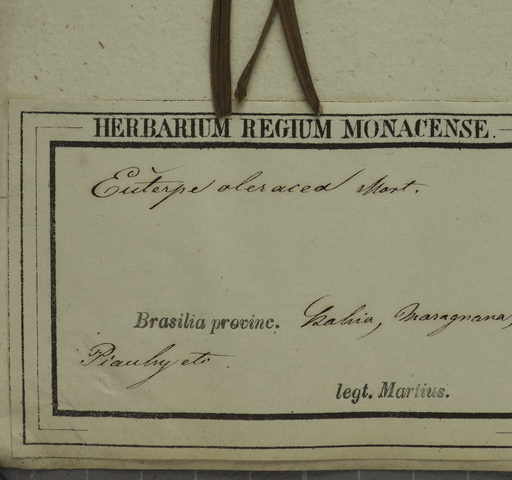 HERBARIUM REGIUM MONACENSE.
Euterpe oleracea Mart.
Brasilia provinc. Bahia, Maragnana,
Piauhy etc
legt. Martius.